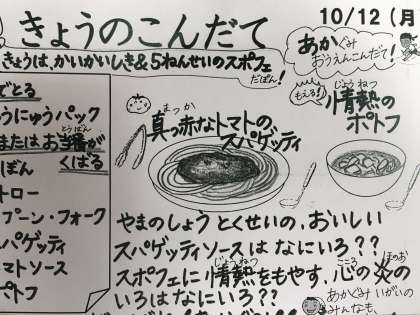 きょうのこんだて
10/12（月
きょうは、かいかいしき&5ねんせいのスポフェ
だぽん!
あかぐみ
おうえんこんだて!
もえろ!
情熱の
じょうねつ
ポトフ
真っ赤なトマトの
まっか
スパゲッティ
でとる
うにゅうパック
または お当番が
とうばん
くばる
ぼん
トロー
プーン・フォーク
パゲッティ
マトソース
ポトフ
やまのしょう とくせいの、おいしい
スパゲッティソースは なにいろ??
スポフェに 情熱をもやす、心の炎の
じょうねつ
こころ
ほのお
いろは なにいろ??
あかぐみ いがいの
みんなも、